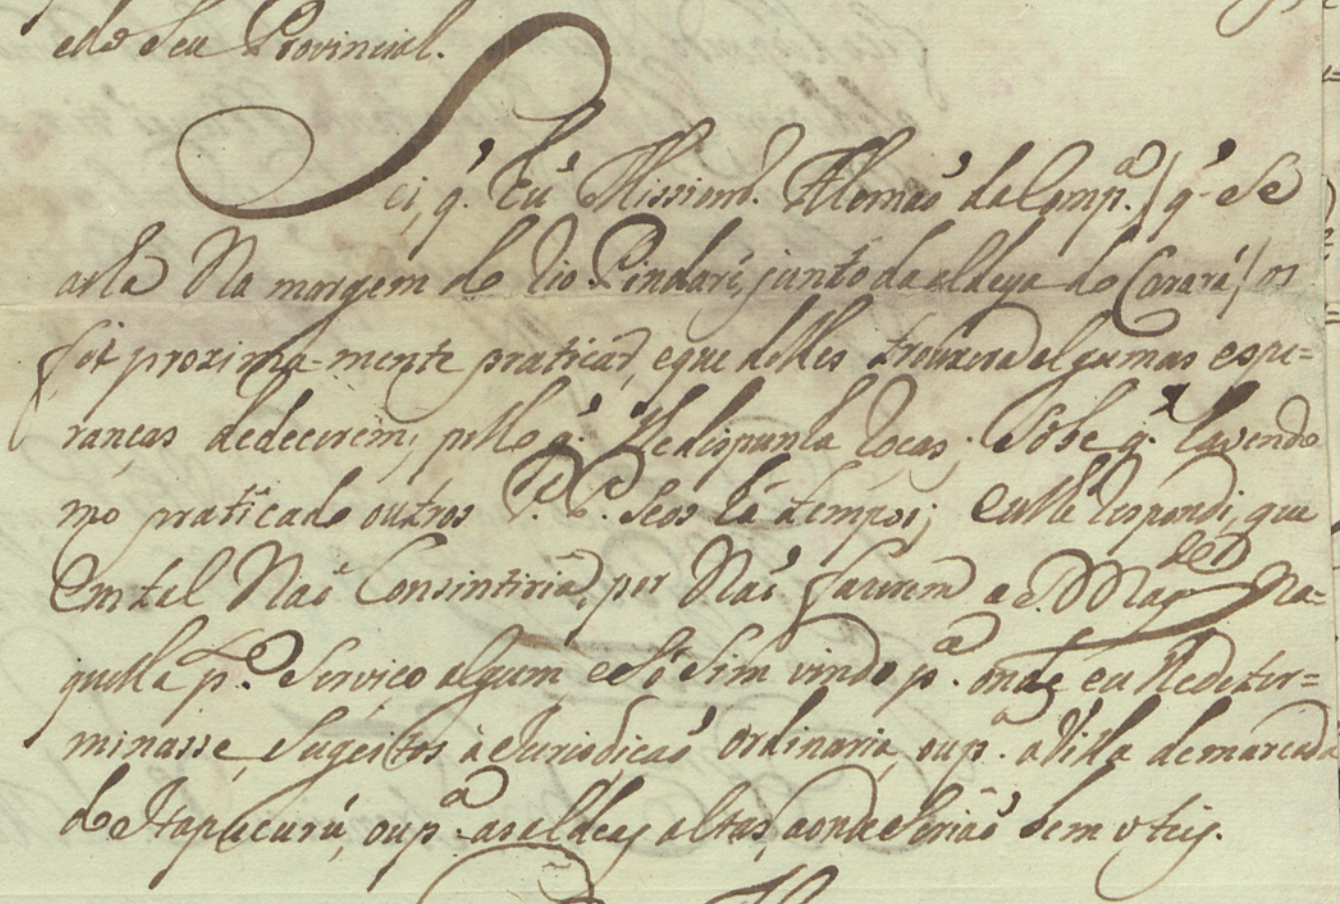 e do Seu Provincial.
Sei, q. hũ Mission.º Alemaõ da Comp.ª / q. Se
acha Na margem do Rio Pindaré, junto da aldeya do Carará / os
foi proxima-mente praticar, eque delles trouxera algumas espe=
ranças dedecerem; pello q. lhe dispunha roças; Sobe q. havendo
mo praticado outros P.P. Seos há tempos; eulhe respondi, que
Em tal Naõ Consintiria, por Naõ fazerem a S. Mag.de Na=
quella p.te Serviço algum, e Só Sim vindo p.ª onde eu lhe deter=
minasse, Sugeitos à Jurisdicaõ ordinaria, ou p.ª a Villa demarcada
do Itapucurú, ou p.ª as aldeas altas, aonde Seriaõ bem uteis.